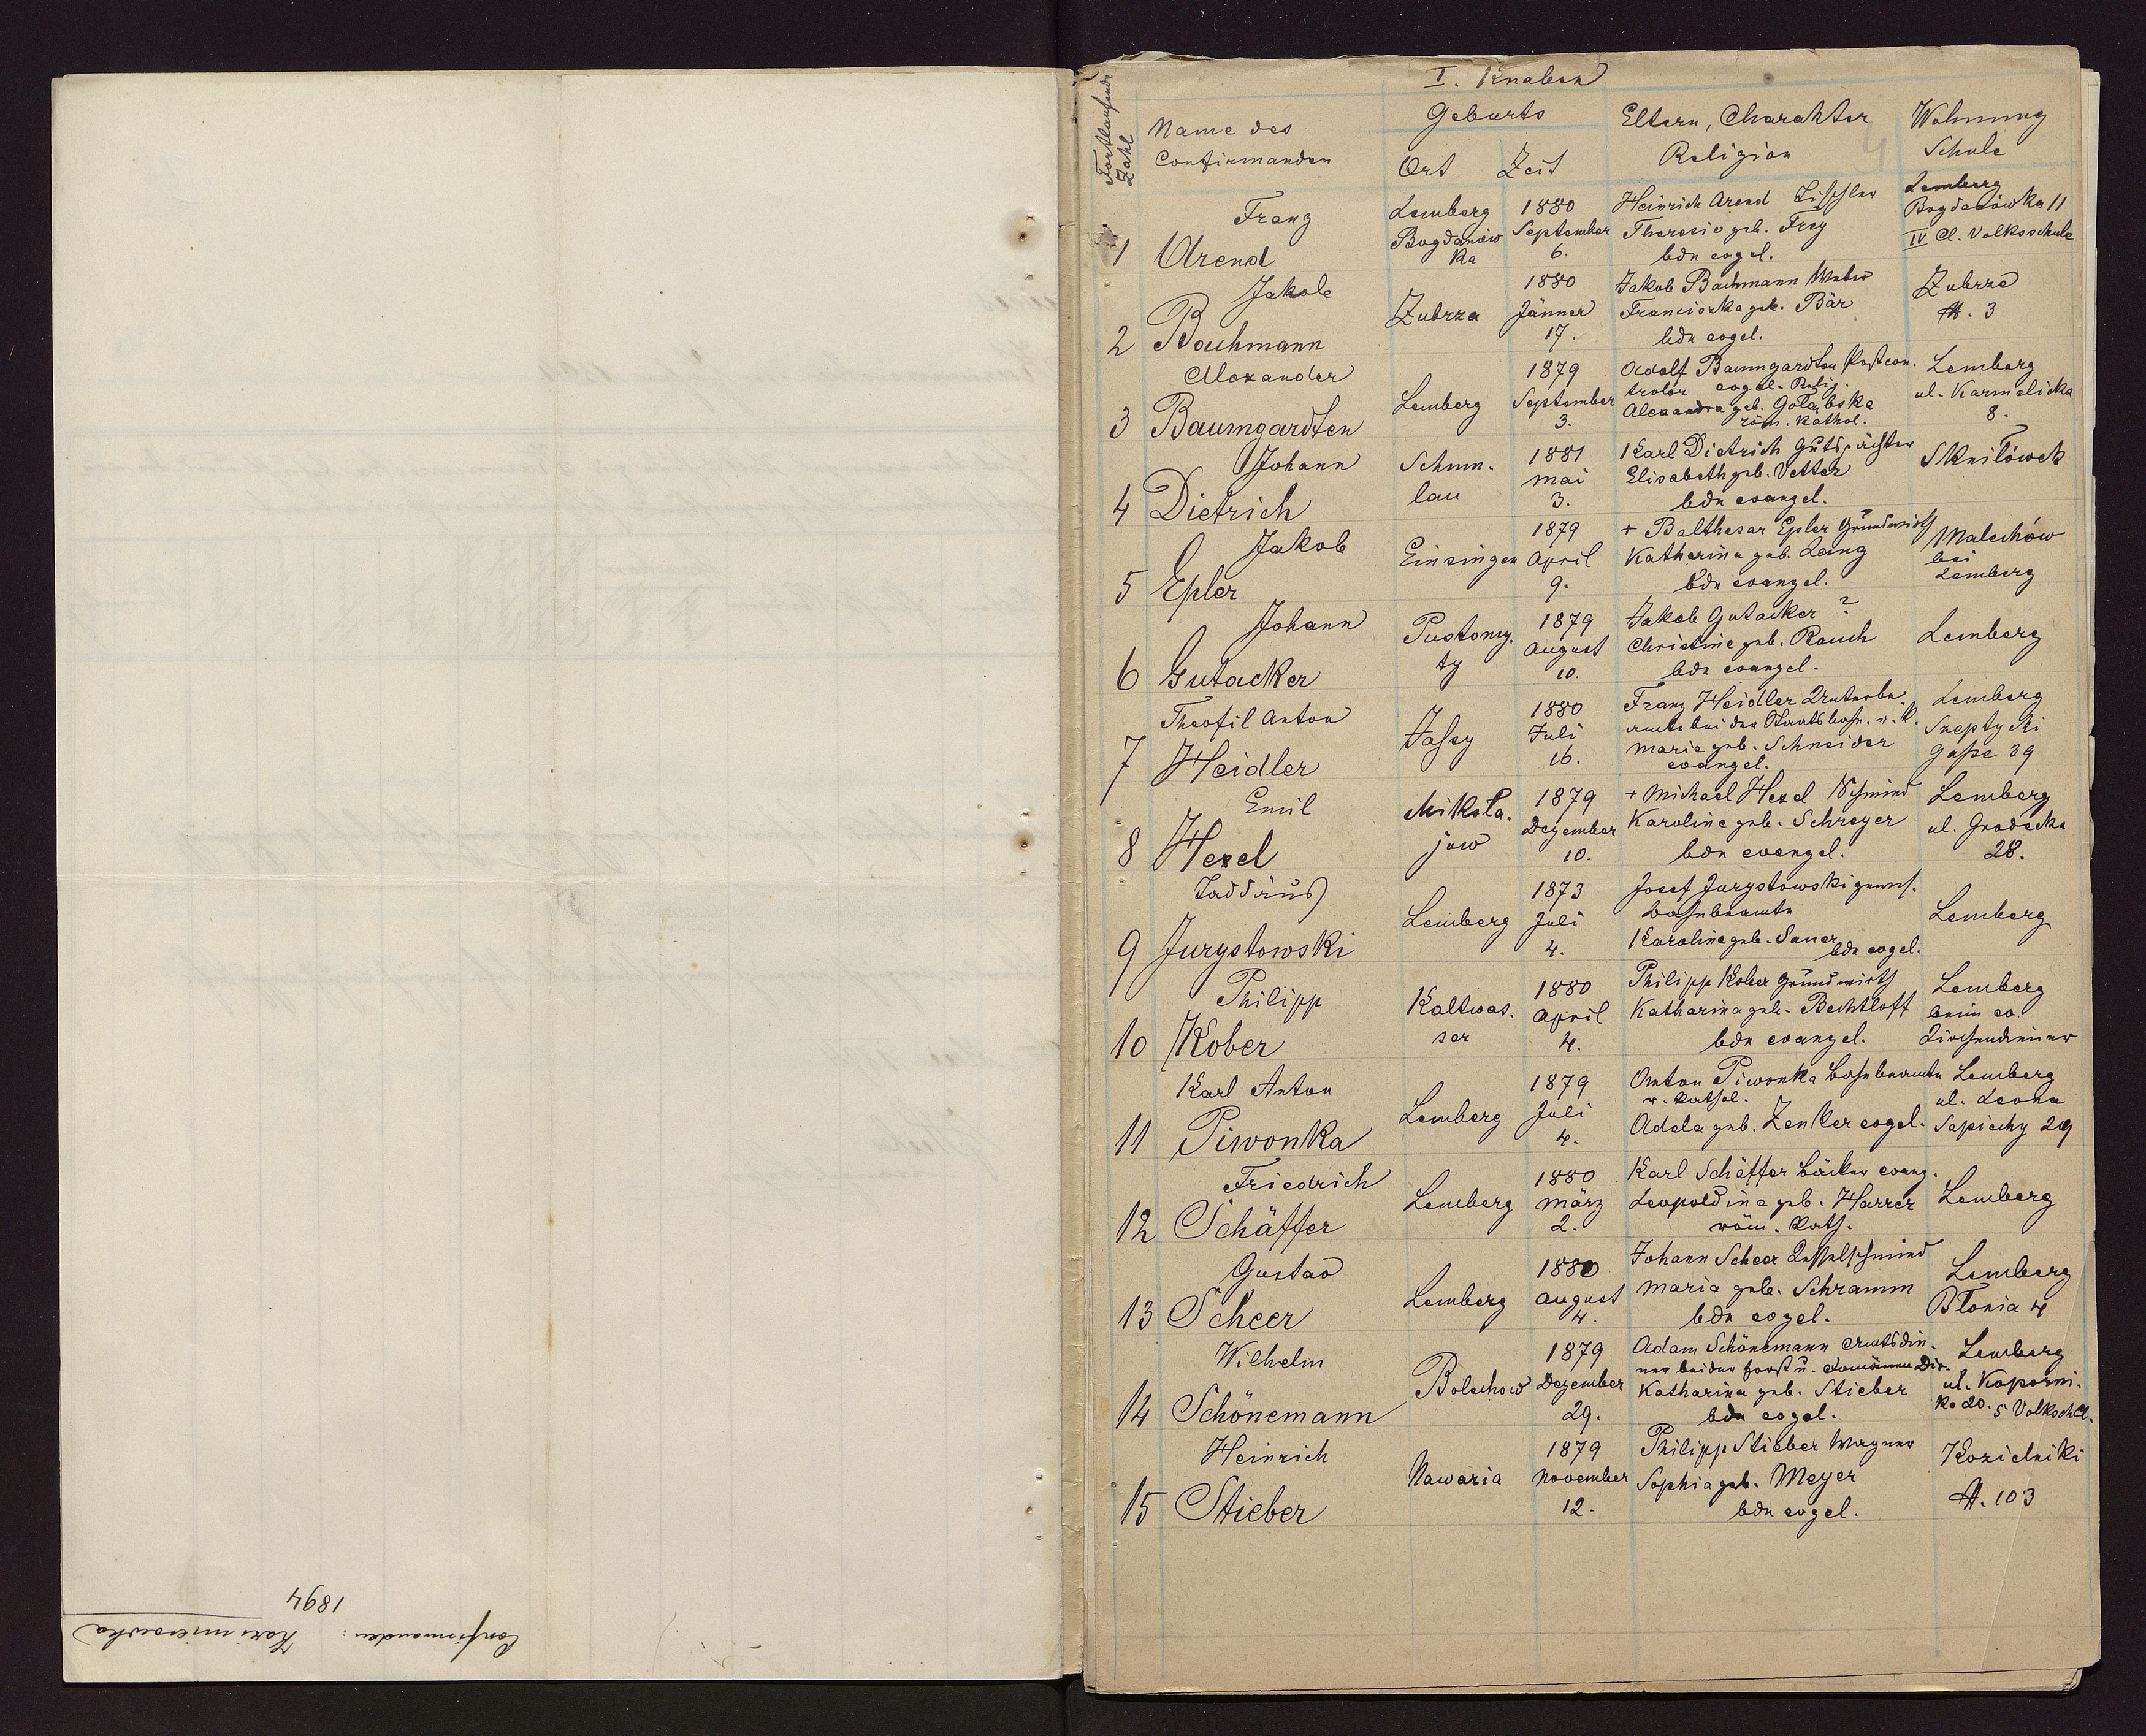 Confirmanden:
Kazimierowka
1894
I. Knaben
Fortlaufende Zahl
Name des Confirmanden
Geburts
Ort Zeit
Eltern, Charakter Religion
Wohnung Schule
1 Franz Arend
Lemberg Bogdanówka
1880 September 6.
Heinrich Arend Tischler
Theresia geb. Frey
bde evgel.
Lemberg
Bogdanówka 11
IV Cl. Volksschule
2 Jakob Bachmann
Zubrza
1880 Jänner 17.
Jakob Bachmann Weber
Franciszka geb. Bär
bde evgel.
Zubrza
N. 3
3 Alexander Baumgardten
Lemberg
1879 September 3.
Adolf Baumgardten Postcon.
trolor evgel. Relig.
Alexandra geb. Gołąbska
röm. Kathol.
Lemberg
ul. Karmelicka
8.
4 Johann Dietrich
Schum.
lau
1881 Mai 3.
Karl Dietrich Gutspächter
Elisabeth geb. Vetter
bde evangel.
Skniłówek
5 Jakob Epler
Einsingen
1879 April 9.
+ Balthasar Epler Grundwirth
Katharina geb. Lang
bde evangel.
Malechów
bei
Lemberg
6 Johann Gutacker
Pustomy.
ty
1879 August 10.
Jakob Gutacker ?
Christine geb. Rauch
bde evangel.
Lemberg
7 Theofil Anton Heidler
Jassy
1880 Juli 16.
Franz Heidler Unterbe.
amte bei der Staatsbahn r. k.
Marie geb. Schneider
evangel.
Lemberg
Szeptycki
Gasse 39
8 Emil Hexel
Mikoła.
jow
1879 Dezember 10.
+ Michael Hexel Schmied
Karoline geb. Schreyer
bde evangel.
Lemberg
ul. Grodecka
28.
9 Taddäus Jurystowski
Lemberg
1873 Juli 4.
Josef Jurystowski gewes.
Bahnbeamte
Karoline geb. Sauer
bde evgel.
Lemberg
10 Philipp Kober
Kaltwas.
ser
1880 April 4.
Philipp Kober Grundwirth
Katharina geb. Bechtloff
bde evangel.
Lemberg
beim ev.
Kirchendiener
11 Karl Anton Piwonka
Lemberg
1879 Juli 4.
Anton Piwonka Bahnbeamte
r. kathol.
Adela geb. Zenker evgel.
Lemberg
ul. Leona
Sapiechy 29
12 Friedrich Schäffer
Lemberg
1880 März 2.
Karl Schäffer Bäcker evang.
Leopoldine geb. Harrer
röm. kath.
Lemberg
13 Gustav Scheer
Lemberg
1880 August 4.
Johann Scheer Kesselschmied
Maria geb. Schramm
bde evgel.
Lemberg
Błonia 4
14 Wilhelm Schönemann
Bolechow
1879 Dezember 29.
Adam Schönemann Amtsdie.
ner bei der Forst u. Domänen Dir.
Katharina geb. Stieber
bde evgel.
Lemberg
ul. Koperni.
ka 20. 5 Volkschl.
15 Heinrich Stieber
Nawaria
1879 November 12.
Philipp Stieber Wagner
Sophia geb. Meyer
bde evgel.
Kozielniki
N. 103